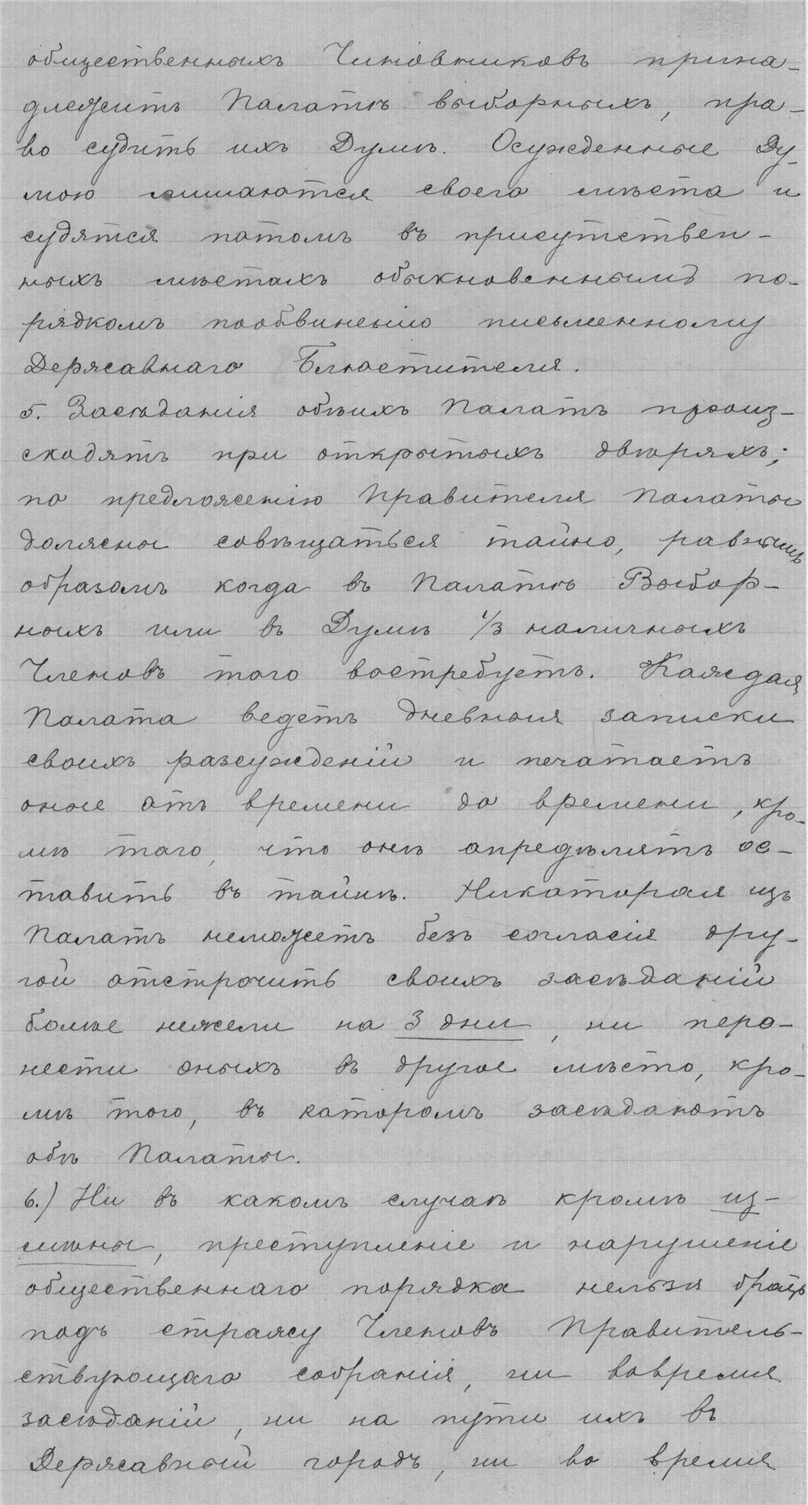 общественныхъ Чиновниковъ прина-
длежитъ Палатѣ выборныхъ, пра-
во судить ихъ Думѣ. Осужденные Ду-
мою лишаются своего мѣста и
судятся потомъ въ присутствен-
ныхъ мѣстахъ обыкновеннымъ по-
рядкомъ пообвиненію письменному
Державнаго Блюстителя.
5. Засѣданія обѣихъ Палатъ произ-
ходятъ при открытыхъ дверяхъ;
по предложенію Правителя Палаты
должны совѣщаться тайно, равнымъ
образомъ когда въ Палатѣ Выбор-
ныхъ или въ Думѣ 1/3 наличныхъ
Членовъ того востребуетъ. Каждая
Палата ведетъ дневныя записки
своихъ разсужденій и печатаетъ
оные отъ времени до времени, кро-
мѣ того, что онѣ опредѣлятъ ос-
тавить въ тайнѣ. Никоторая изъ
Палатъ неможетъ безъ согласія дру-
гой отстрочить своихъ засѣданій
болѣе нежели на 3 дни, ни пере-
нести оныхъ въ другое мѣсто, кро-
мѣ того, въ которомъ засѣдаютъ
обѣ Палаты.
6.) Ни въ какомъ случаѣ кромѣ из-
мѣны, преступленіе и нарушеніе
общественнаго порядка нельзя брать
подъ стражу Членовъ Правитель-
ствующаго собранія, ни вовремя
засѣданій, ни на пути ихъ въ
Державный городъ, ни во время